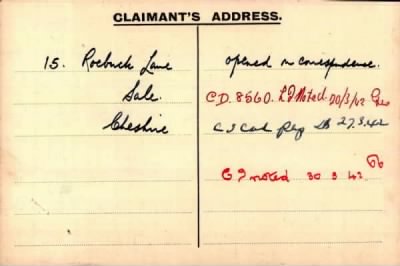 CLAIMANT'S ADDRESS.
15. Roebuck Lane
Sale.
Cheshire
opened on correspondence.
C.D. 8560. L.I Noted 20/3/42
C I Card Reg 27.3.42
C I noted 30 3 42